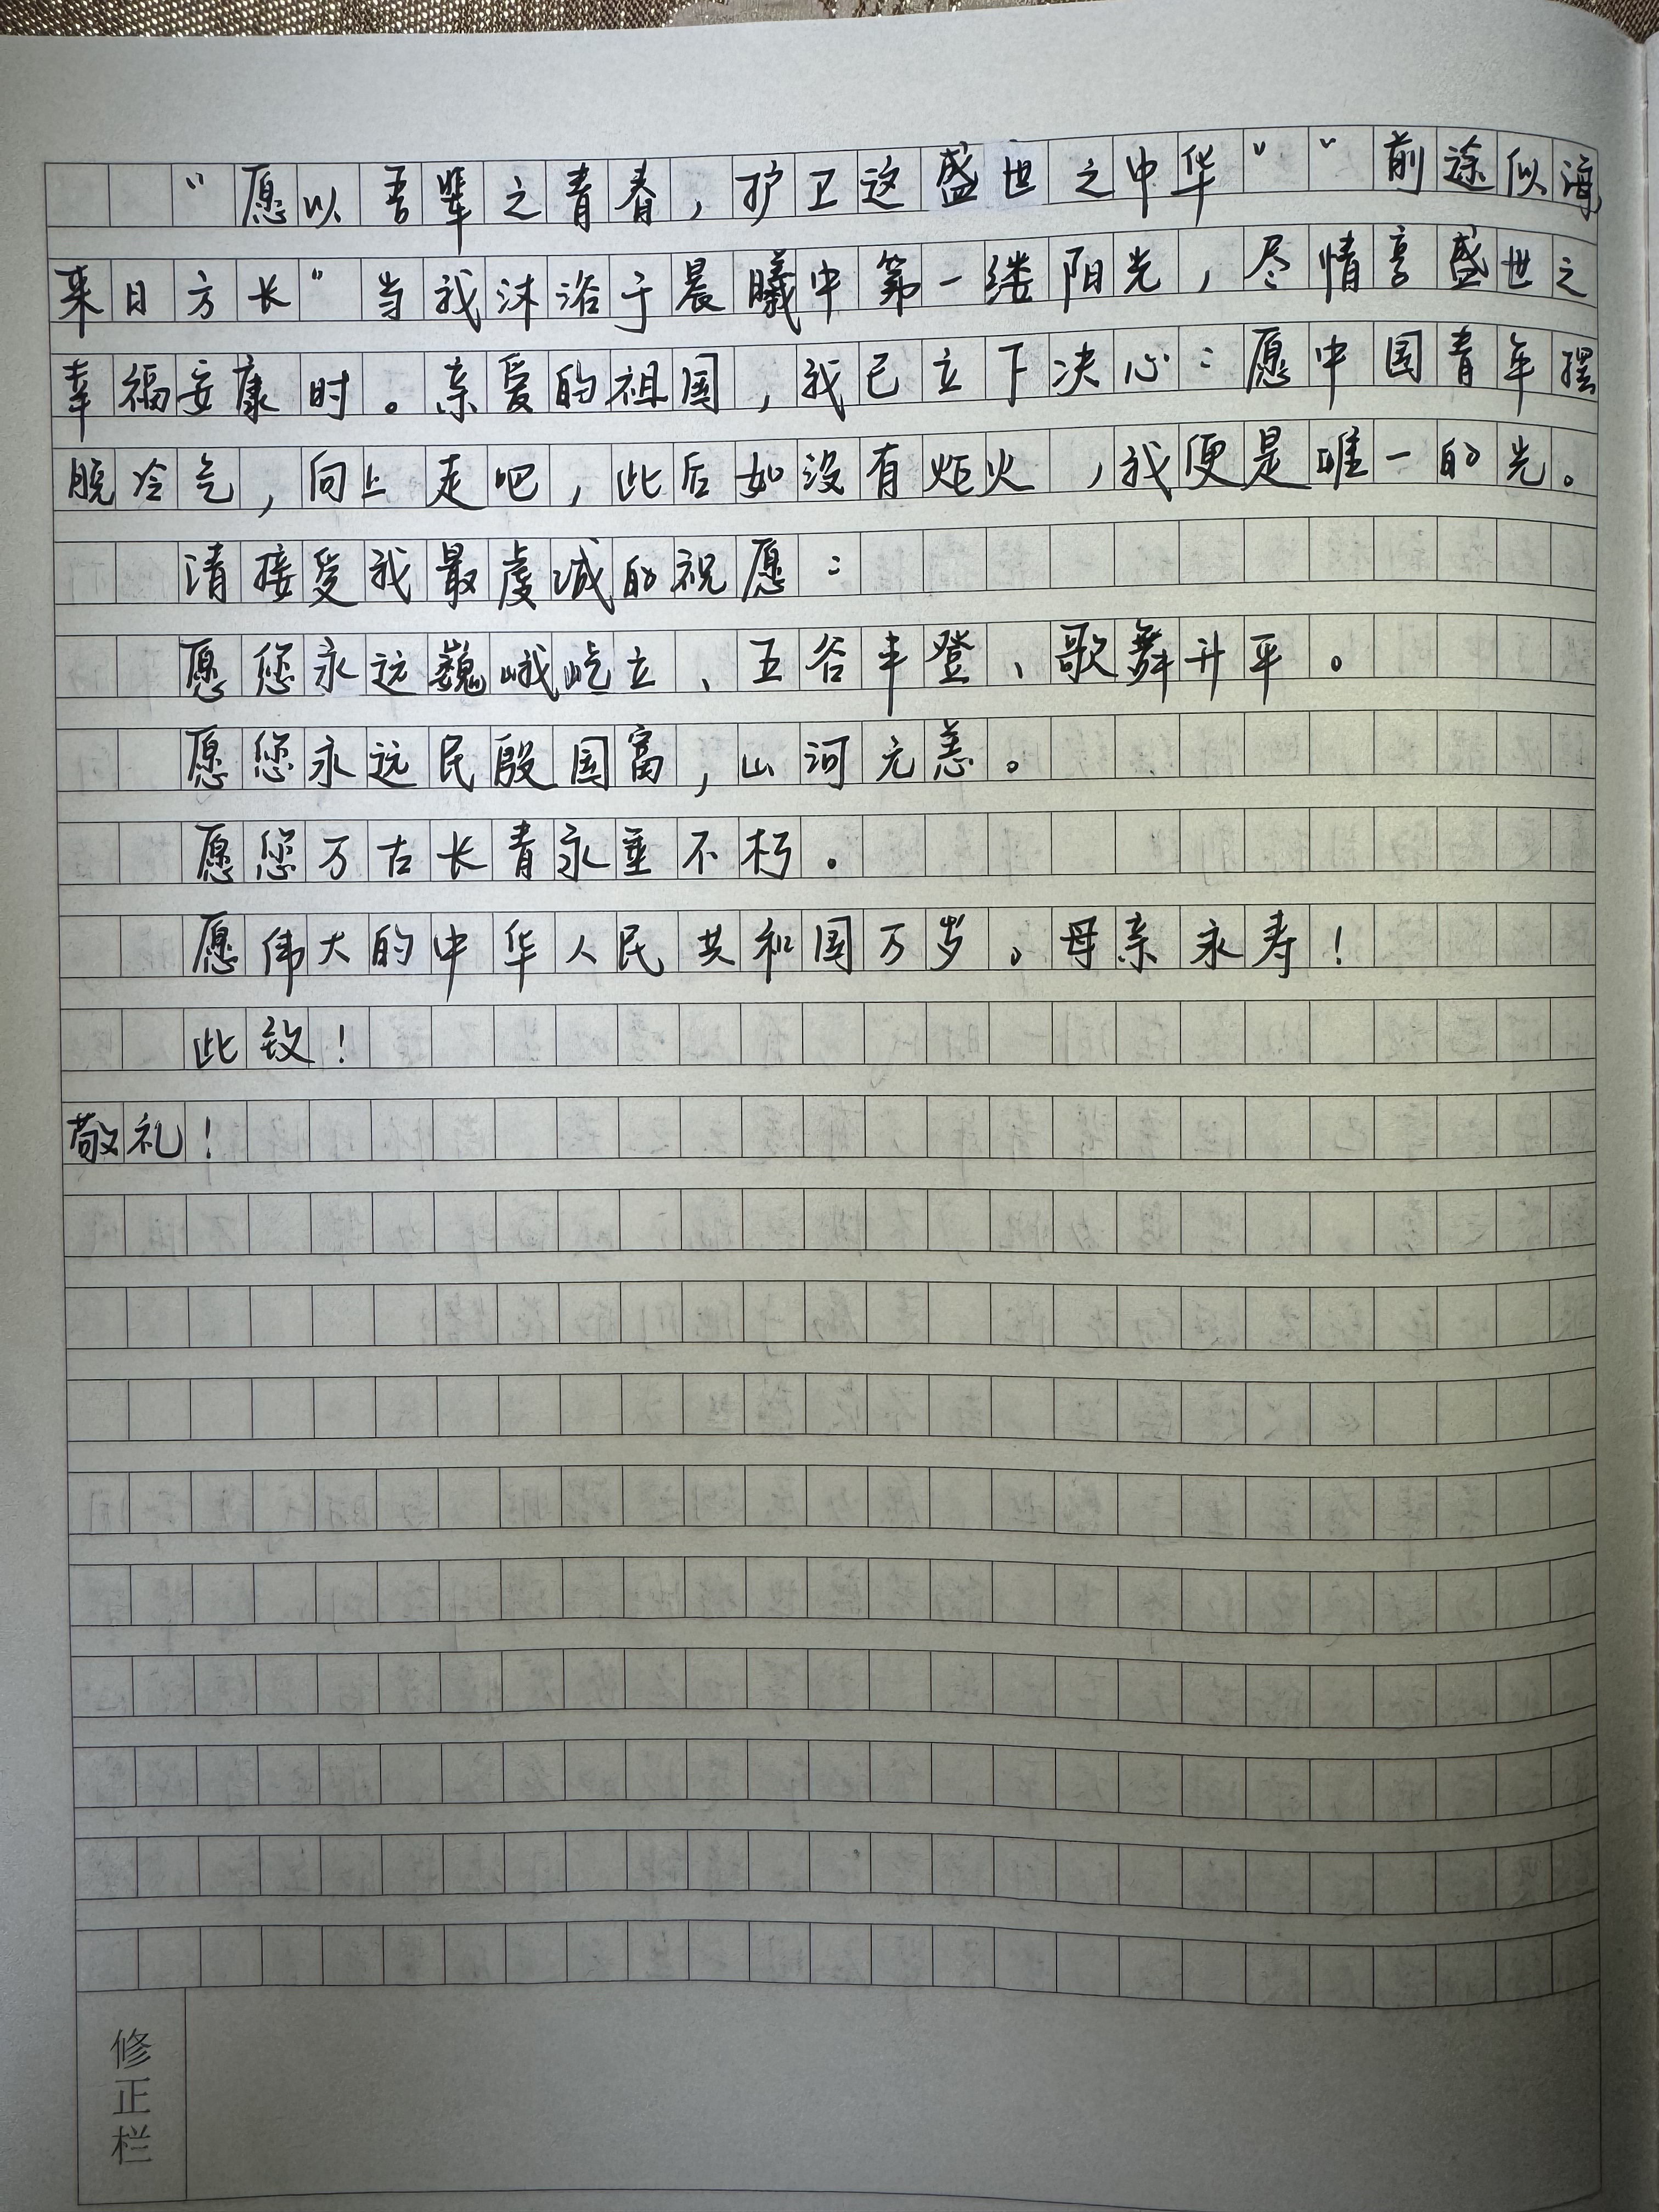 “愿以吾辈之青春，护卫这盛世之中华”“前途似海
来日方长”当我沐浴于晨曦中第一缕阳光，尽情享盛世之
幸福安康时。亲爱的祖国，我已立下决心：愿中国青年摆
脱冷气，向上走吧，此后如没有炬火，我便是唯一的光。
请接受我最虔诚的祝愿：
愿您永远巍峨屹立、五谷丰登、歌舞升平。
愿您永远民殷国富，山河无恙。
愿您万古长青永垂不朽。
愿伟大的中华人民共和国万岁。母亲永寿！
此致！
敬礼！
修正栏